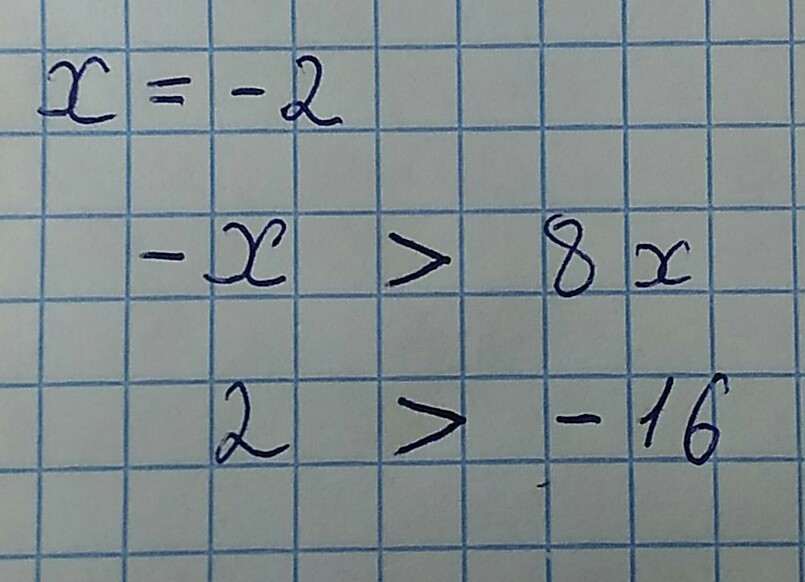 x = -2
-x > 8x
2 > -16